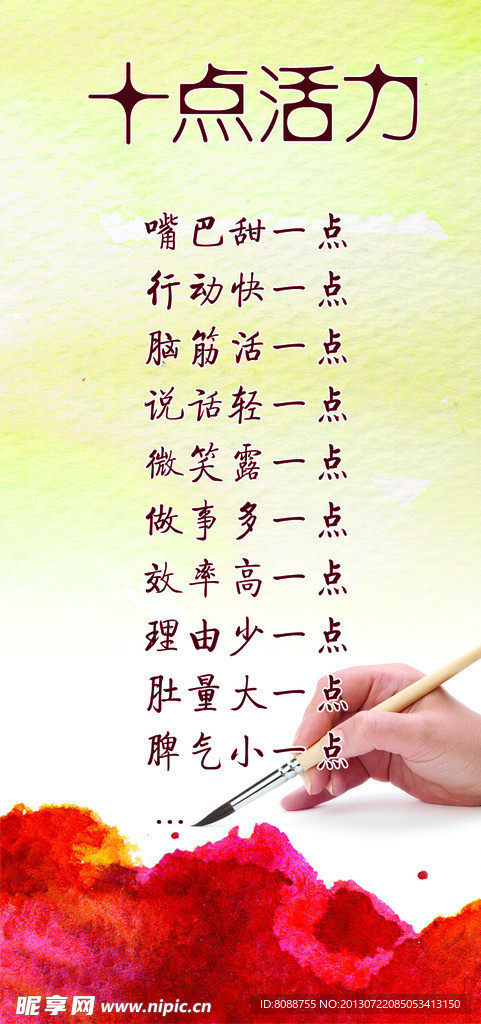 十点活力
嘴巴甜一点
行动快一点
脑筋活一点
说话轻一点
微笑露一点
做事多一点
效率高一点
理由少一点
肚量大一点
脾气小一点
...
昵享网 www.nipic.cn
ID:8088755 NO:20130722085053413150